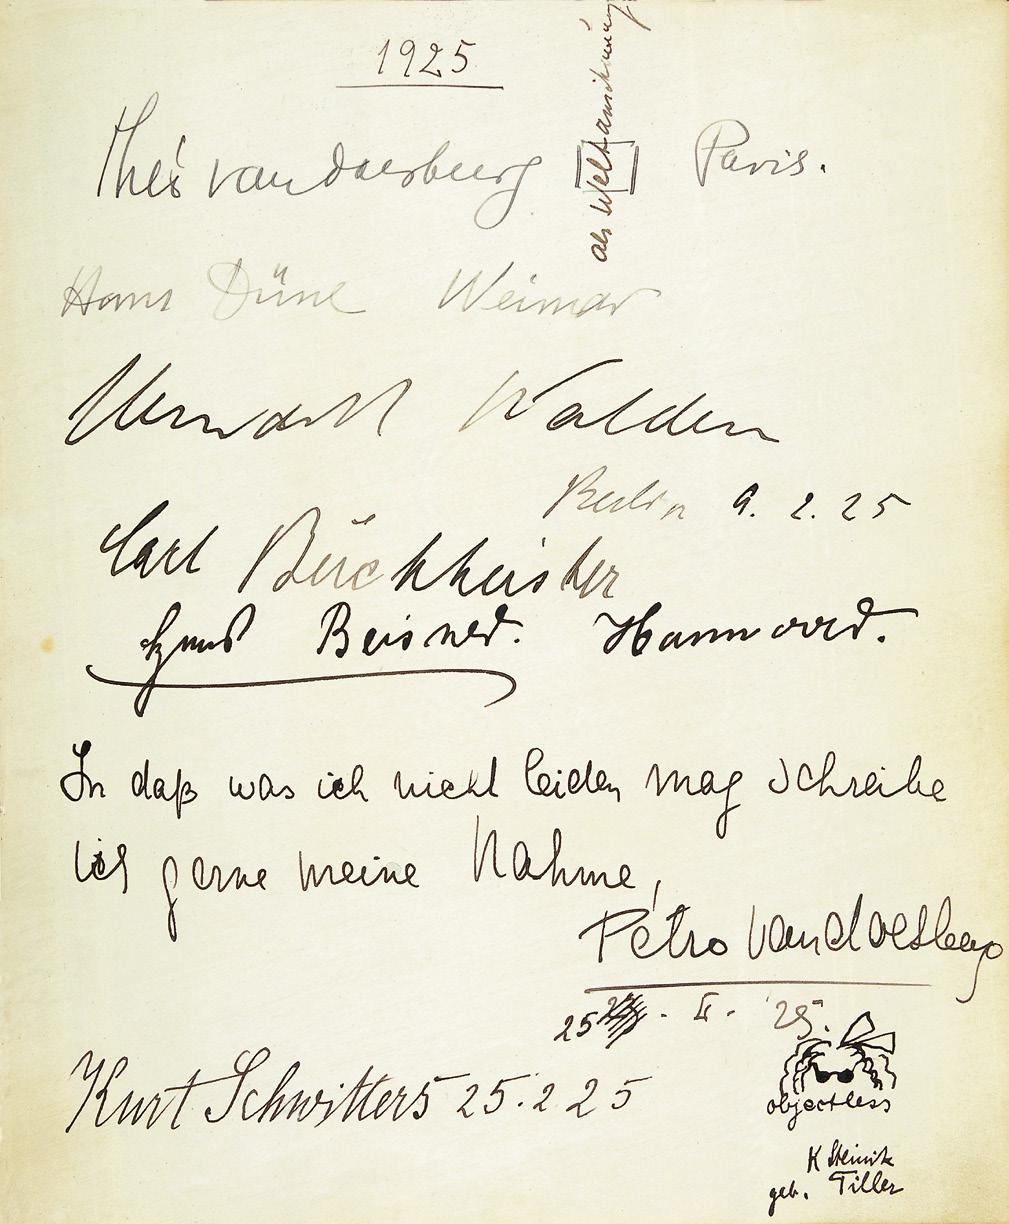 1925
Théo van Doesburg Paris.
als Weltanschauung
Hans Weimar
Walden
Berlin 9. 2. 25
Carl Buchheister
Beisner. Hannover.
In daß was ich nicht leiden mag schreibe
ich gerne meine Nahme,
Pétro van doesburg
25 . II. 25.
Kurt Schwitters 25.2 25
objectless
K Steinitz
geb. Tiller